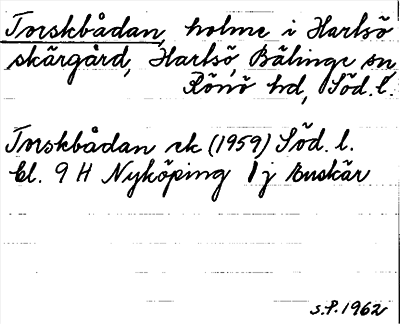 Torskbådan, holme i Hartsö
skärgård, Hartsö, Bälinge sn,
Rönö hd, Söd. l.
Torskbådan ek (1959) Söd. l.
bl. 9 H Nyköping 1 j Enskär
S.P. 1962